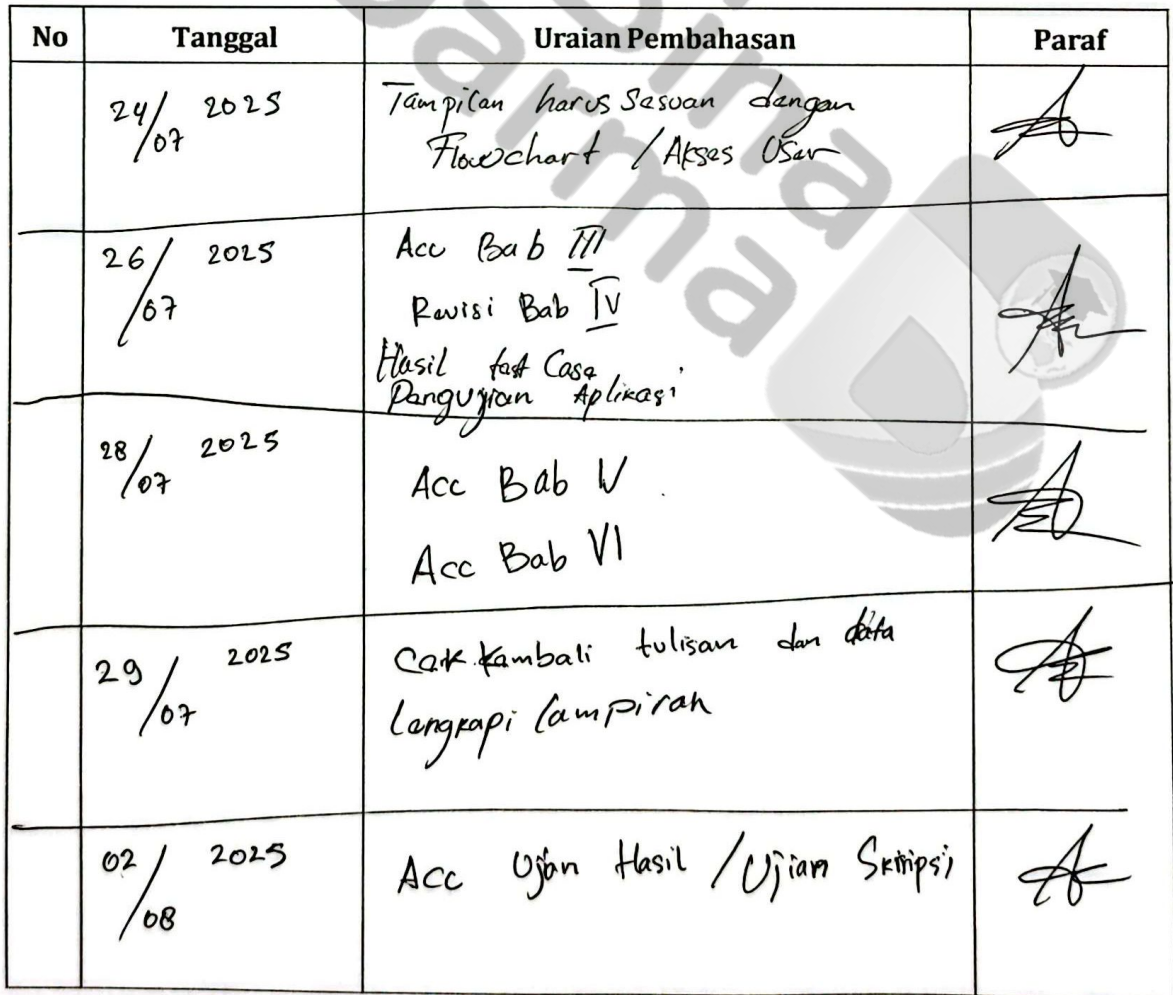 No Tanggal Uraian Pembahasan Paraf
24/07 2025 Tampilan harus Sesuan dengan
Flowchart / Akses User
26/07 2025 Acc Bab III
Revisi Bab IV
Hasil test Case
Pengujian Aplikasi
28/07 2025 Acc Bab V
Acc Bab VI
29/07 2025 Cek kembali tulisan dan data
Lengkapi lampiran
02/08 2025 Acc Ujian Hasil / Ujian Skripsi
bina
darma